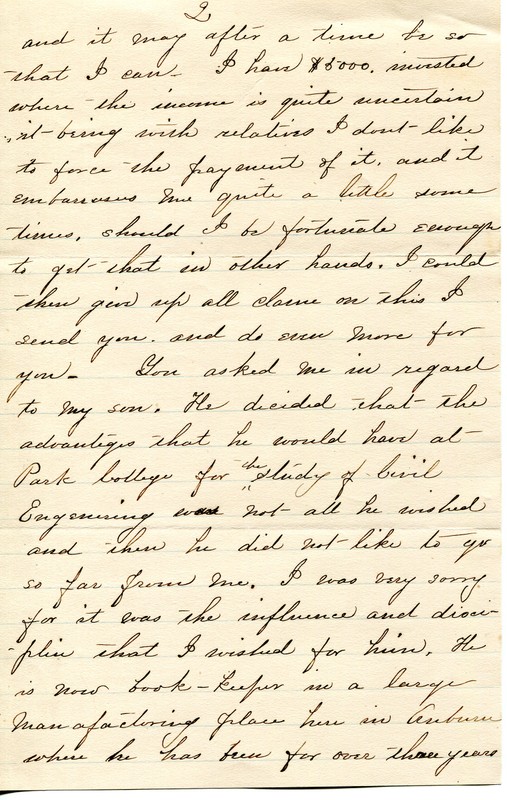 2
and it may after a time be so
that I can - I have $5000. invested
where the income is quite uncertain
it being with relatives I dont like
to force the payment of it, and it
embarrases me quite a little some
times, should I be fortunate enough
to get that in other hands. I could
then give up all claim on this I
send you. and do even more for
you - You asked me in regard
to my son. He decided that the
advantiges that he would have at
Park College for the study of Civil
Engenering was not all he wished
and then he did not like to go
so far from me. I was very sorry
for it was the influence and disci-
plin that I wished for him. He
is now book-keeper in a large
Manafactoring place here in Auburn
where he has been for over three years